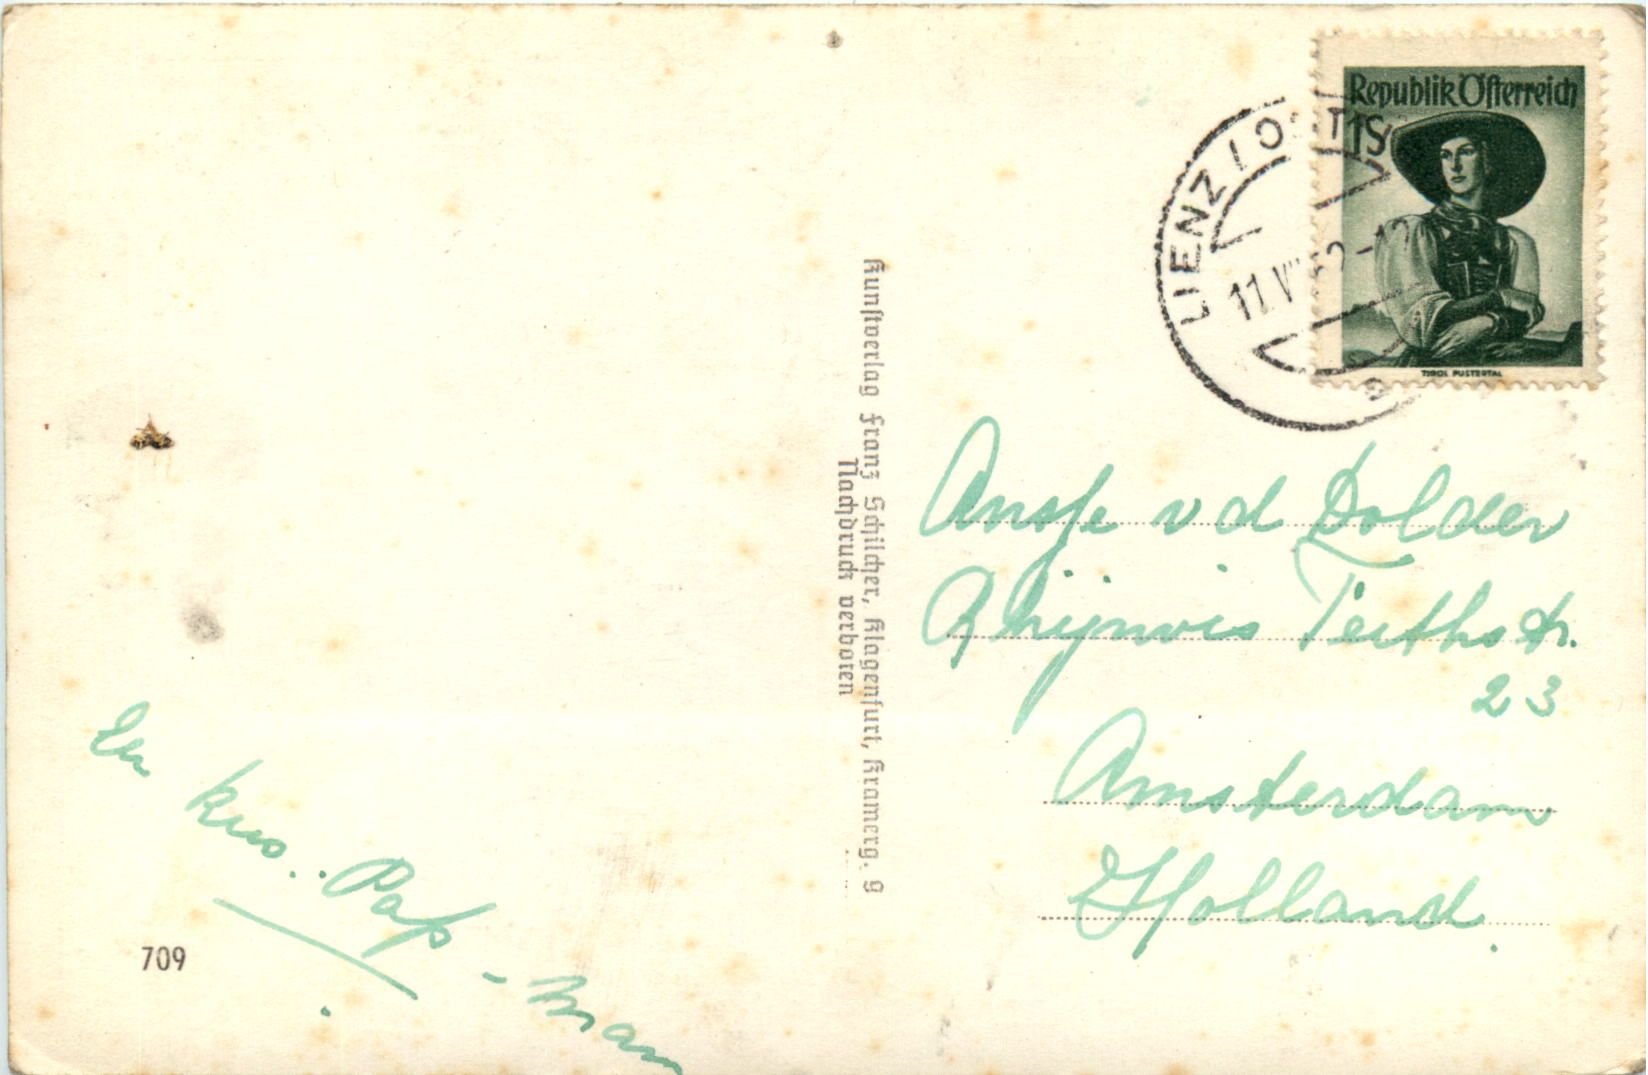 Republik Österreich
1S
TIROL PUSTERTAL
LIENZ / OST
11.V
Kunstverlag Franz Schilcher, Klagenfurt, Kramerg. 9
Nachdruck verboten
Ansje v d Dolder
Rhijnvis Feithstr.
23
Amsterdam
Holland.
Een kus.. Paps - Mam
709